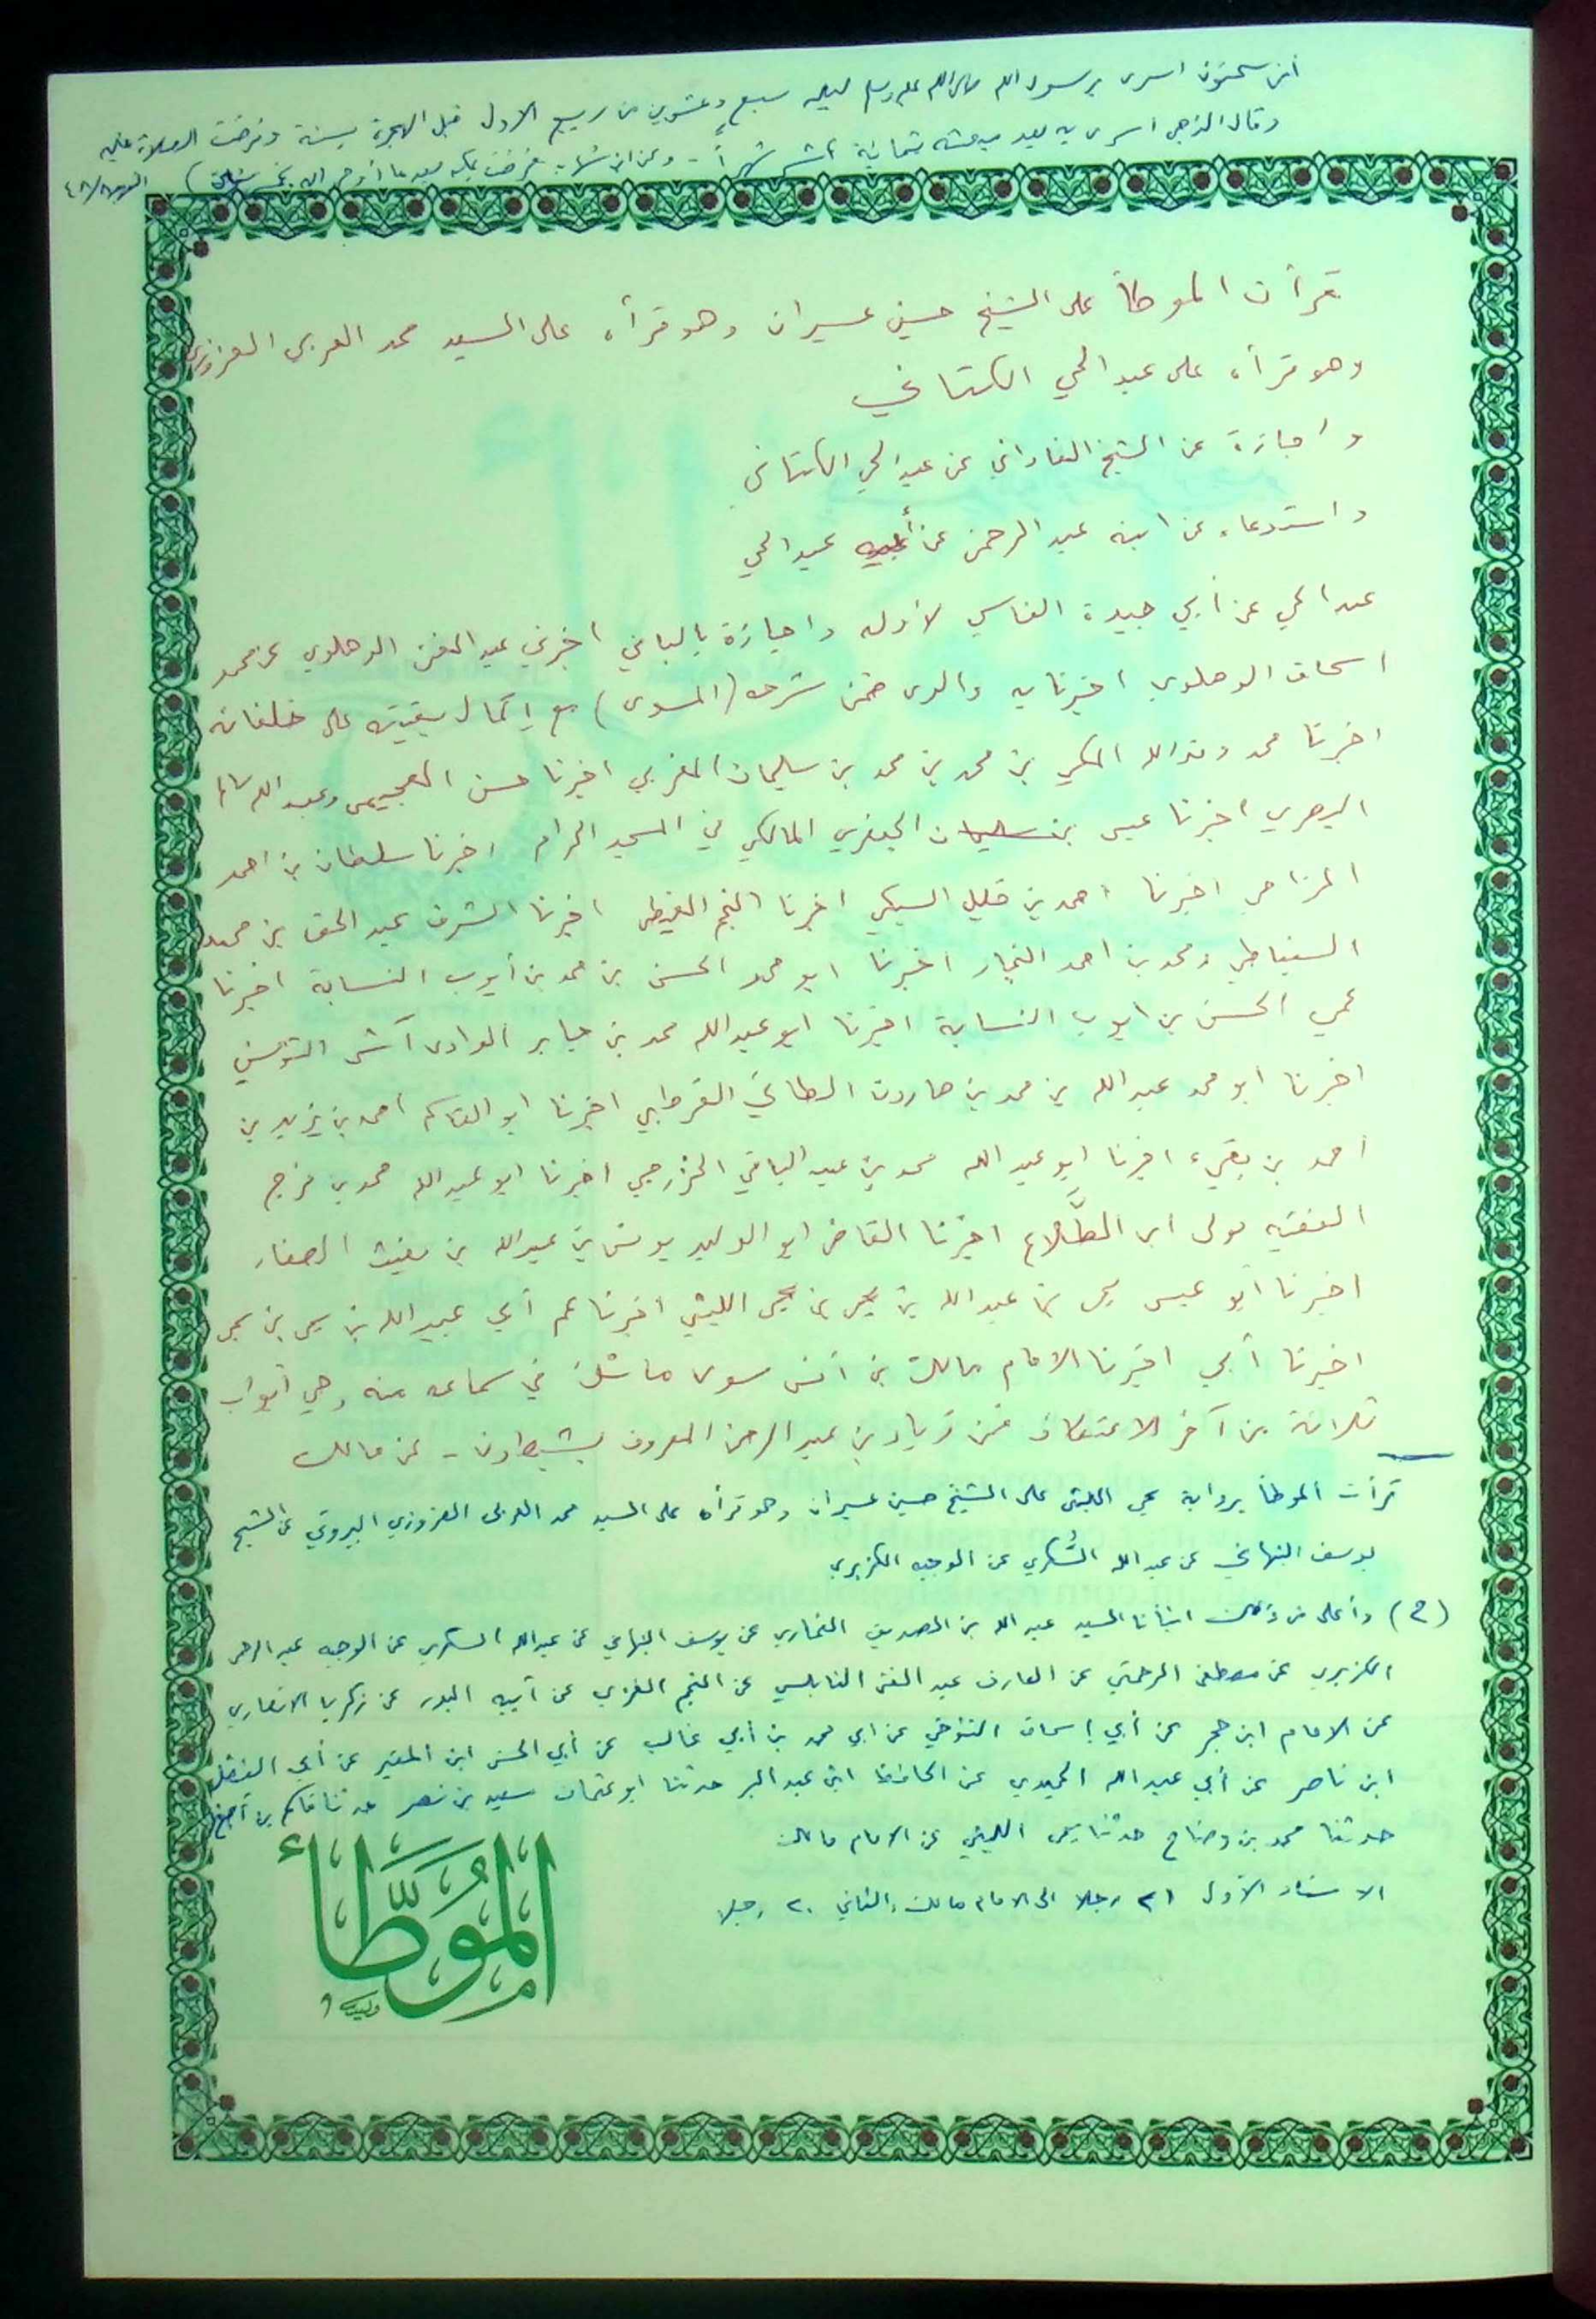 ابن سحنون اسرى برسول الله صلى الله عليه وسلم ليلة سبع وعشرين من ربيع الاول قبل الهجرة بسنة وفرضت الصلاة عليه
وقال الذهبي اسرى به بعد مبعثه بثمانية عشر شهراً - وعن ابن شهاب فرضت بمكة بعد ما أوحى الله
قرأت الموطأ على الشيخ حسين عسيران وهو قرأه على السيد محمد العربي العزوزي
وهو قرأه على عبد الحي الكتاني
واجازة عن الشيخ الفاداني عن عبد الحي الكتاني
واستدعاء عن ابنه عبد الرحمن عن أبيه عبد الحي
عبد الحي عن أبي جيدة الفاسي لأوله واجازة بالباقي اخبرني عبد الغني الدهلوي عن محمد
اسحاق الدهلوي اخبرنا به والدي ضمن شرحه (المسوى) مع إكمال بقيته على خلفائه
اخبرنا محمد وفد الله المكي بن محمد بن محمد بن سليمان المغربي اخبرنا حسن العجيمي وعبد الله سالم
البصري اخبرنا عيسى بن سليمان الجعفري المالكي في المسجد الحرام اخبرنا سلطان بن احمد
المزاحي اخبرنا احمد بن خليل السبكي اخبرنا النجم الغيطي اخبرنا الشرف عبد الحق بن محمد
السنباطي ومحمد بن احمد النجار اخبرنا ابو محمد الحسن بن محمد بن أيوب النسابة اخبرنا
عمي الحسن بن ايوب النسابة اخبرنا ابو عبد الله محمد بن جابر الوادى آشى التونسي
اخبرنا ابو محمد عبد الله بن محمد بن هارون الطائي القرطبي اخبرنا ابو القاسم احمد بن يزيد بن
أحمد بن بقي، اخبرنا ابو عبد الله محمد بن عبد الباقي الخزرجي اخبرنا ابو عبد الله محمد بن فرج
الفقيه مولى ابن الطَّلاع اخبرنا القاضي ابو الوليد يونس بن عبد الله بن مغيث الصفار
اخبرنا ابو عيسى يحي بن عبد الله بن يحي بن يحي الليثي اخبرنا عم أبي عبيد الله بن يحي بن يحي
اخبرنا أبي اخبرنا الامام مالك بن انس سوى ما شك في سماعه منه وهي أبواب
ثلاثة من آخر الاعتكاف فعن زياد بن عبد الرحمن المعروف بشبطون - عن مالك
قرأت الموطأ برواية يحي الليثي على الشيخ حسين عسيران وهو قرأه على السيد محمد العربي العزوزي البيروتي عن الشيخ
يوسف النبهاني عن عبد الله السُّكري عن الوجيه الكزبري
(ح) وأعلى من ذلك انبأنا السيد عبد الله بن الصديق الغماري عن يوسف النبهاني عن عبد الله السكري عن الوجيه عبد الرحمن
الكزبري عن مصطفى الرحمتي عن العارف عبد الغني النابلسي عن النجم الغزي عن أبيه البدر عن زكريا الانصاري
عن الامام ابن حجر عن أبي إسحاق التنوخي عن ابي محمد بن أبي غالب عن أبي الحسن ابن المقير عن أبي الفضل
ابن ناصر عن أبي عبد الله الحميدي عن الحافظ ابن عبد البر حدثنا ابو عثمان سعيد بن نصر حدثنا قاسم بن أصبغ
حدثنا محمد بن وضاح حدثنا يحي الليثي عن الامام مالك
الاسناد الأول ٢١ رجلا الى الامام مالك والثاني ٢٠ رجلا
الموَطَّأ